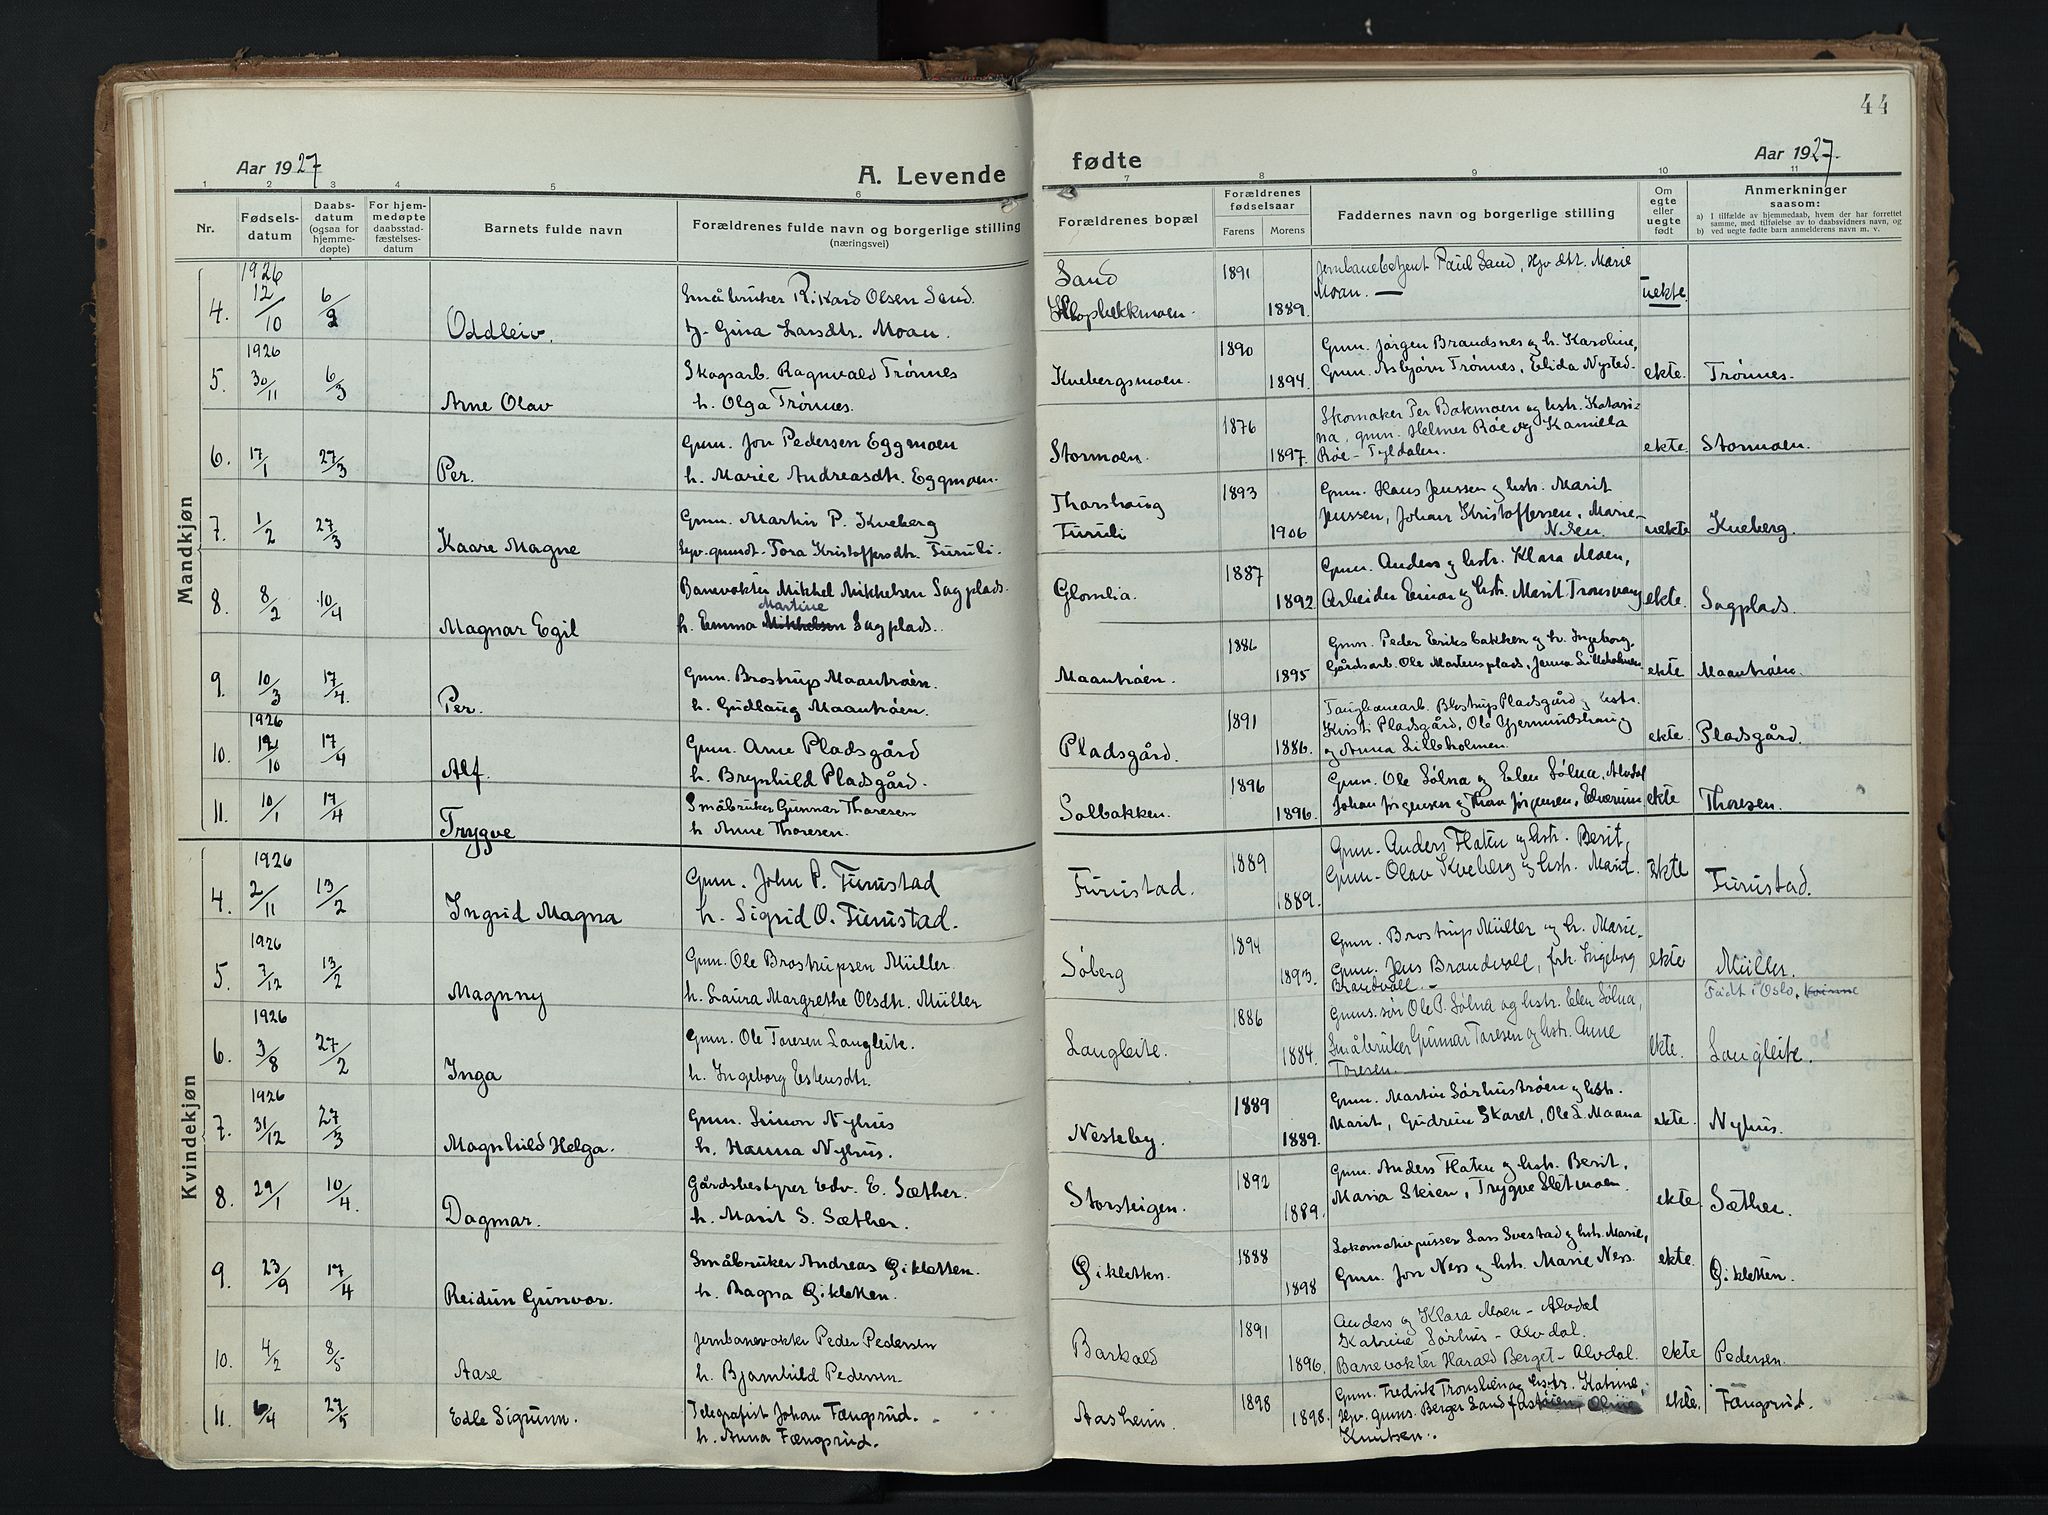 44
Aar 1927
A. Levende
fødte
Aar 1927.
1 2 3 4 5 6 7 8 9 10 11
Nr.
Fødsels-
datum
Daabs-
datum
(ogsaa for
hjemme-
døpte)
For hjem-
medøpte
daabsstad-
fæstelses-
datum
Barnets fulde navn
Forældrenes fulde navn og borgerlige stilling
(næringsvei)
Forældrenes bopæl
Forældrenes
fødselsaar
Farens Morens
Faddernes navn og borgerlige stilling
Om
egte
eller
uegte
født
Anmerkninger
saasom:
a) I tilfælde av hjemmedaab, hvem der har forrettet
samme, med tilføielse av to daabsvidners navn, og
b) ved uegte fødte barn anmelderens navn m. v.
Mandkjøn
1926
4. 12/10 6/2 Oddleiv. Småbruker Rikard Olsen Sand. Sand 1891 Jernbanebetjent Paul Sand, Hjv. dtr. Marie
Gina Larsdtr. Moan. 1889. Moan. — uekte.
1926
5. 30/11 6/3 Arne Olav Skogsarb. Ragnvald Trønnes Kvebergsmoen. 1890 Gmn. Jørgen Brandsnes og h. Karoline,
h. Olga Trønnes. 1894. Gmn. Asbjørn Trønnes, Elida Nysted. ekte. Trønnes.
6. 17/1 27/3 Per. Gmn. Jon Pedersen Eggmoen Stormoen. 1876 Skomaker Per Bakmoen og hstr. Katari-
h. Marie Andreasdtr. Eggmoen. 1897. na, gmn. Helmer Røe og Kamilla
Røe - Tyldalen. ekte. Stormoen.
7. 1/2 27/3 Kaare Magne Gmn. Martin P. Kveberg Thorshaug 1893 Gmn. Hans Jenssen og hstr. Marit
Tora Kristoffersdtr. Furuli. Furuli 1906 Jenssen, Johan Kristoffersen, Marie
uekte Kveberg.
8. 8/2 10/4 Magnar Egil Banevokter Mikkel Mikkelsen Sagplads. Glomlia. 1887 Gmn. Anders og hstr. Klara Moen,
Martine
h. Emma Mikkelsen Sagplads. 1892. Arbeider Einar og hstr. Marit Tronsvang ekte. Sagplads.
9. 10/3 17/4. Per. Gmn. Brostrup Maantrøen. Maantrøen. 1886 Gmn. Peder Eriksbakken og h. Ingeborg,
h. Gudlaug Maantrøen. 1895 Gårdsarb. Ole Martensplads, Jenna Lilleholmen. ekte Maantrøen.
1926
10. 19/10 17/4 Alf. Gmn. Arne Pladsgård Pladsgård. 1891 Brostrup Pladsgård og hstr.
h. Brynhild Pladsgård. 1886. Kristi Pladsgård, Ole Gjermundshaug
og Anna Lilleholmen. ekte. Pladsgård.
11. 10/1 17/4 Trygve Småbruker Gunnar Thoresen Solbakken. 1896 Gmn. Ole Sølna og Elen Sølna, Alvdal
h. Anne Thoresen. 1896. Johan Jørgensen og Thea Jørgensen, Elverum ekte Thoresen.
Kvindekjøn
1926
4. 2/11 13/2 Ingrid Magna Gmn. John P. Furustad Furustad. 1889 Gmn. Anders Flaten og hstr. Berit,
h. Sigrid O. Furustad. 1889. Gmn. Olav Kveberg og hstr. Marit. Ekte Furustad.
1926
5. 7/12 13/2 Magnny Gmn. Ole Brostrupsen Müller. Søberg 1894 Gmn. Brostrup Müller og h. Marie.
h. Laura Margrethe Olsdtr. Müller 1893. Gmn. Jens Brandvoll, frk. Ingeborg
Brandvoll. - ekte Müller.
Født i Oslo,
1926
6. 3/8 27/2 Inga Gmn. Ole Toresen Langleite. Langleite. 1886 Gmns. søn Ole P. Sølna og hstr. Elen Sølna,
h. Ingeborg Estensdtr. 1884. Småbruker Gunnar Toresen og hstr. Anne
Toresen. ekte. Langleite.
1926
7. 31/12 27/3 Magnhild Helga. Gmn. Simon Nyhus Nesteby. 1889 Gmn. Martin Sørhustrøen og hstr.
h. Hanna Nyhus. 1889. Marit, Gudrun Skaret, Ole L. Maana ekte. Nyhus.
8. 29/1 10/4. Dagmar. Gårdsbestyrer Edv. E. Sæther. Storsteigen. 1892 Gmn. Anders Flaten og hstr. Berit.
h. Marit S. Sæther. 1889. Maria Skien, Trygve Sletmoen. ekte Sæther.
9. 23/9 17/4 Reidun Gunvor. Småbruker Andreas Gikletten. Gikletten. 1888 Lokomotivpusser Lars Svestad og hstr. Marie,
h. Ragna Gikletten. 1898 Gmn. Jon Ness og hstr. Marie Ness. ekte. Gikletten.
10. 4/2 8/5 Aase Jernbanevokter Peder Pedersen Barkald 1891 Anders og Klara Moen - Alvdal
h. Bjarnhild Pedersen. 1896. Katrine Sørhus - Alvdal.
Banevokter Harald Berget - Alvdal. ekte Pedersen.
11. 6/4 27/5 Edle Sigrunn. Telegrafist Johan Fængsrud. Aasheim 1898 Gmn. Fredrik Tronslien og hstr. Katrine,
h. Anna Fængsrud. 1898. Hjv. gmns. Berger Sandfastøien, Oline
Knutsen. ekte. Fængsrud.